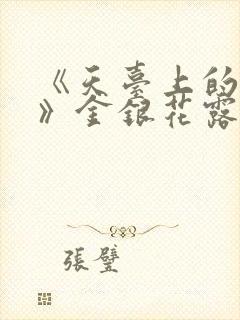 《天臺上的
》金銀花露
張璧